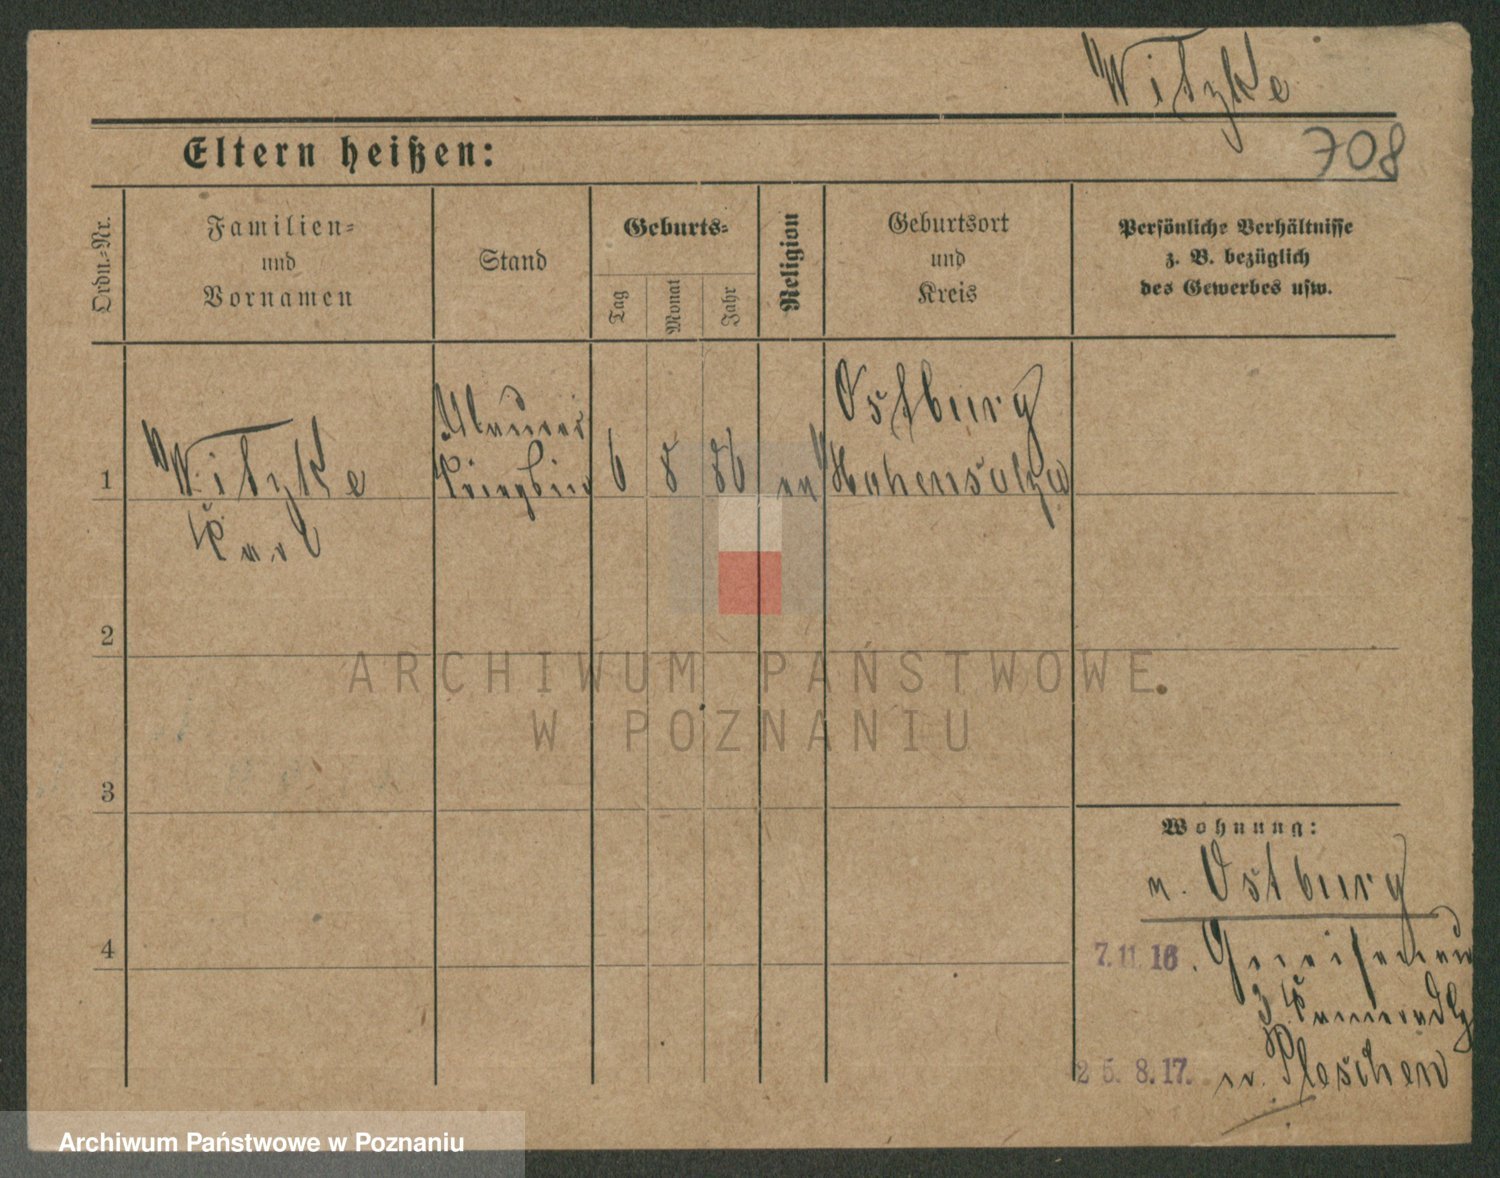 Witzke
708
Eltern heißen:
Ordn.-Nr.
Familien-
und
Vornamen
Stand
Geburts-
Tag
Monat
Jahr
Religion
Geburtsort
und
Kreis
Persönliche Verhältnisse
z. B. bezüglich
des Gewerbes usw.
1
Witzke
Karl
Maurer
6
8
86
ev
Ostburg
Hohensalza
2
3
4
Wohnung:
n. Ostburg
7.11.16. Gneisenau
3
25.8.17. n. Pleschen
ARCHIWUM PAŃSTWOWE
W POZNANIU
Archiwum Państwowe w Poznaniu